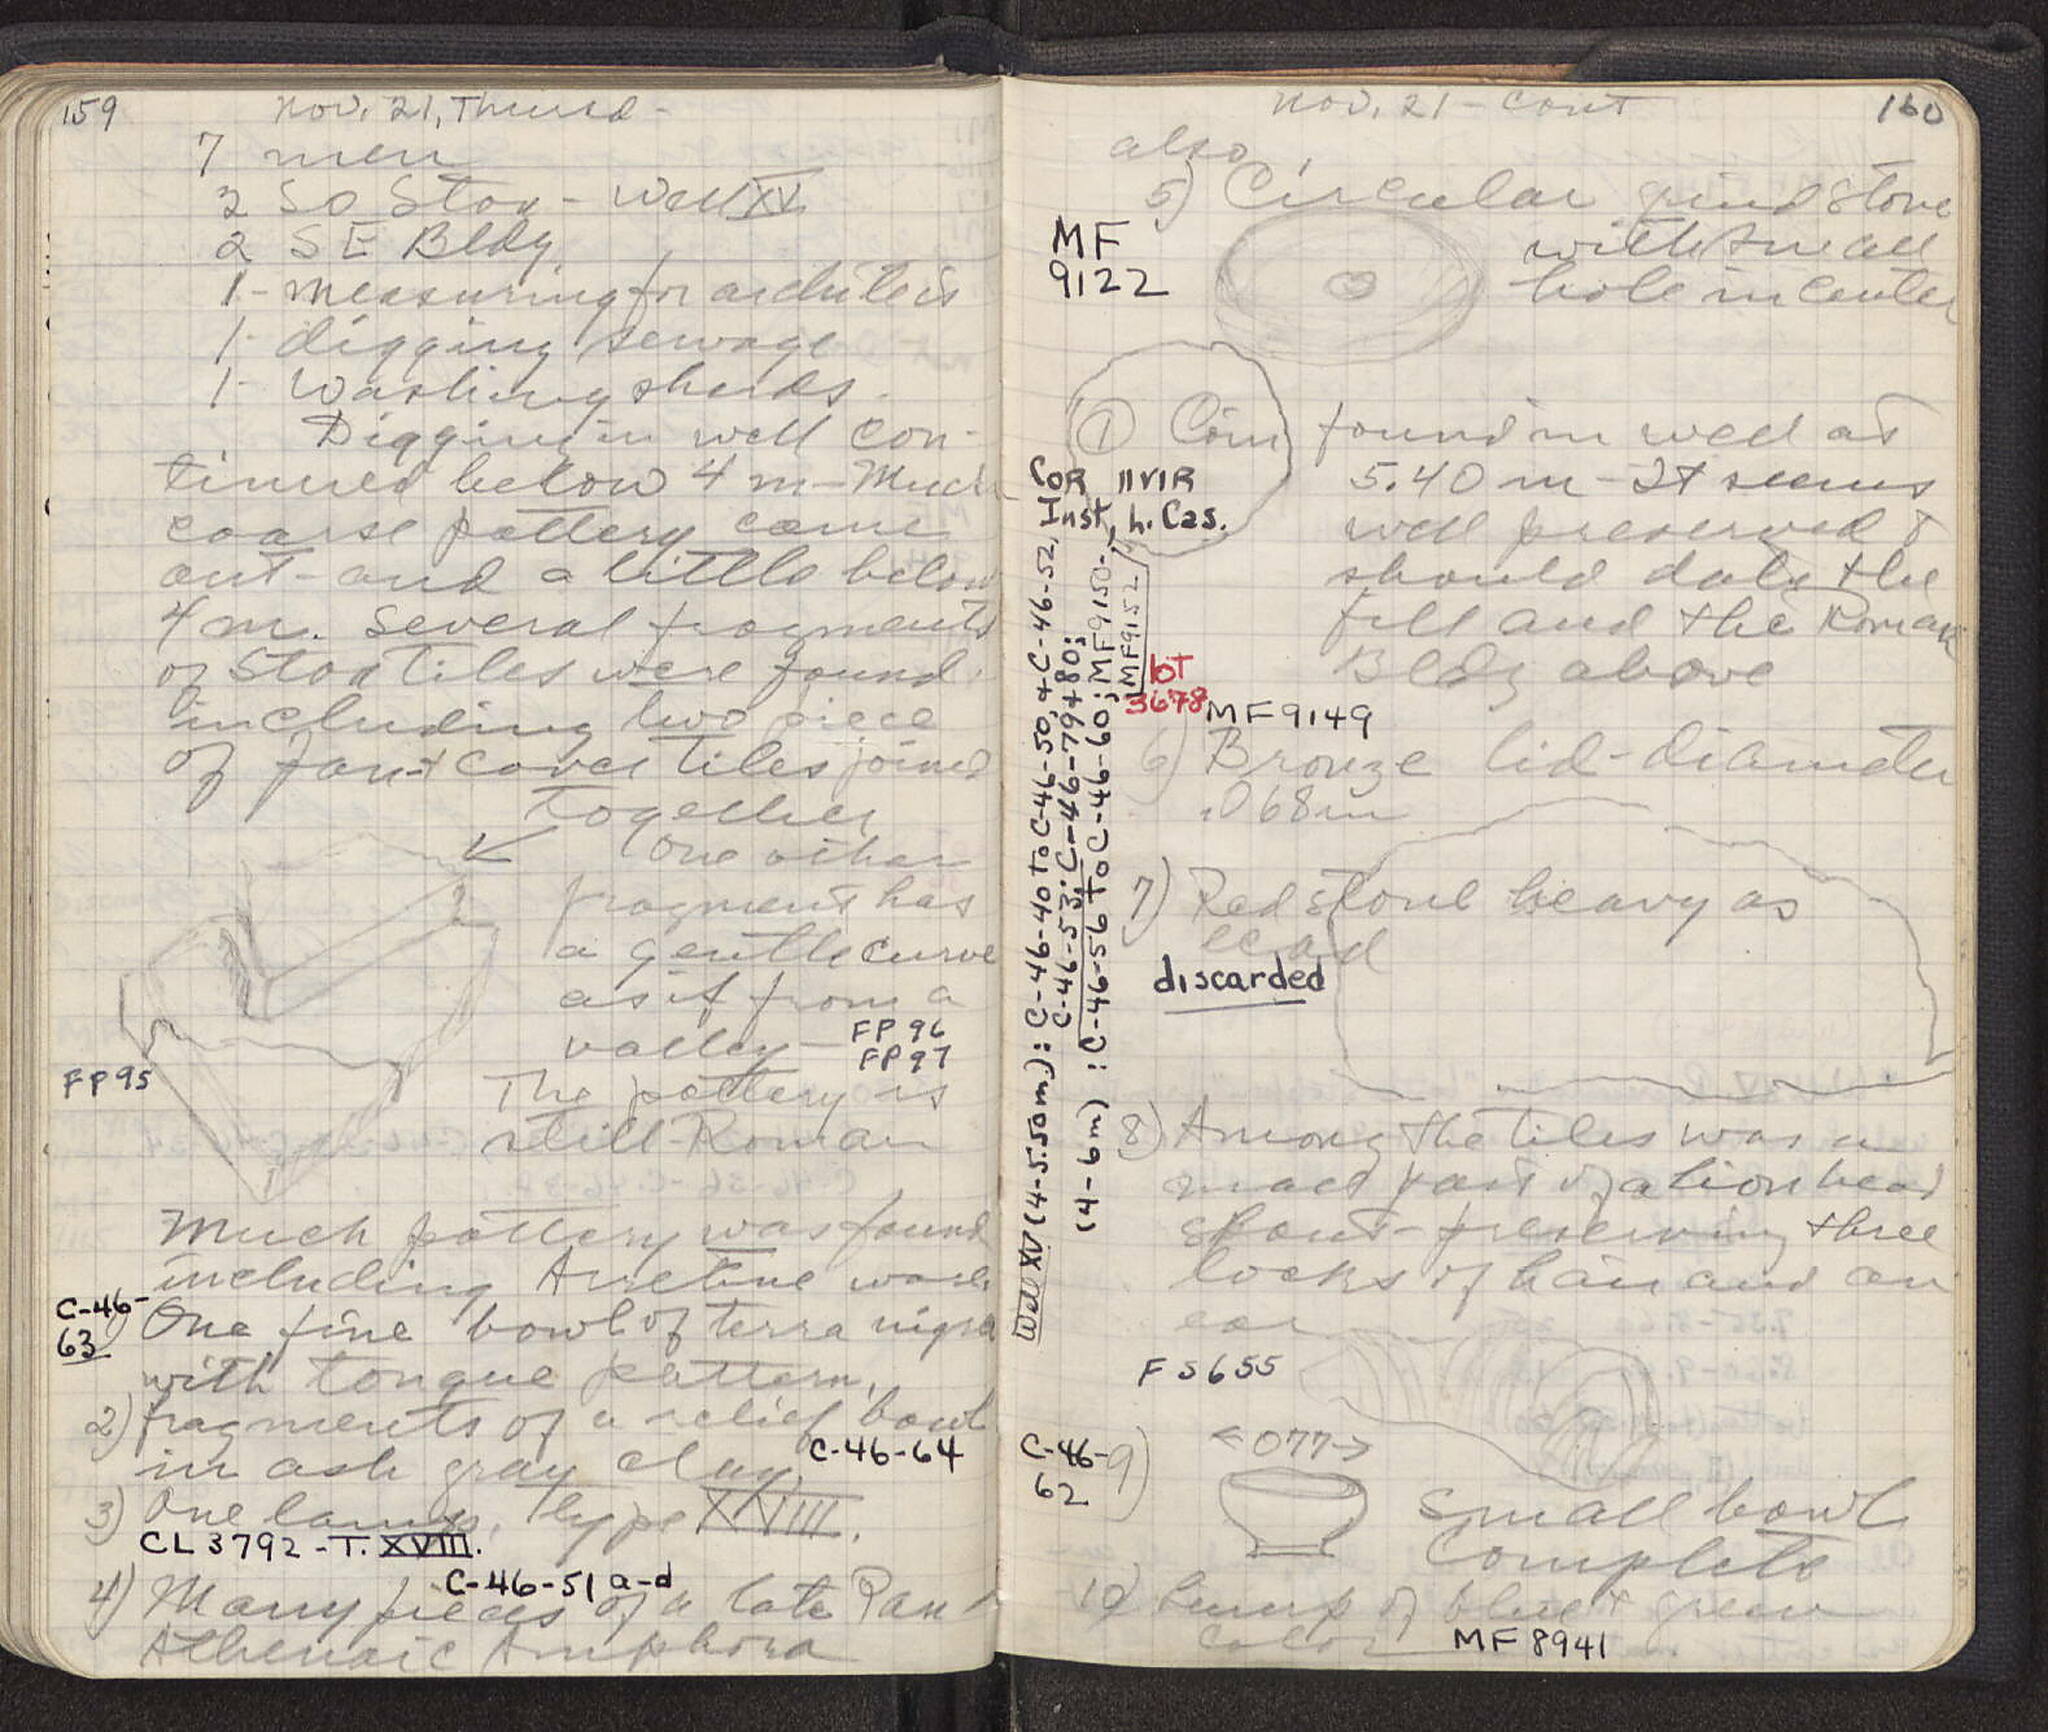 159
Nov. 21, Thursd-
7 men
3 So Stoa - Well XV
2 SE Bldg
1- measuring for architects
1- digging sewage
1- washing sherds.
Digging in well con-
tinued below 4 m - Much
coarse pottery came
out - and a little below
4 m. several fragments
of Stoa tiles were found
including two piece
of pan + cover tiles joined
together
One other
fragment has
a gentle curve
as if from a
valley -
FP 96
FP 97
FP 95
The pottery is
still Roman
Much pottery was found
including Arretine ware
C-46-
63
1) One fine bowl of terra nigra
with tongue pattern.
2) fragments of a relief bowl
in ash gray clay.
C-46-64
3) One lamp, type XVIII.
CL 3792 - T. XVIII.
C-46-51 a-d
4) Many pieces of a late Pan
Athenaic Amphora
Nov. 21 - Cont
160
also
5) Circular grindstone
with small
hole in center
MF
9122
1 Coin found in well at
5.40 m - It seems
well preserved &
should date the
fill and the Roman
Bldg above
COR IIVIR
Inst, h. Cas.
Well XV (4-5.50m): C-46-40 to C-46-50, + C-46-52,
C-46-53; C-46-79 + 80;
(4-6m): C-46-56 to C-46-60; MF9150-
MF9152
lot
3678
MF9149
6) Bronze lid - diameter
.068m
7) Red stone heavy as
lead
discarded
8) Among the tiles was a
small part of a lion head
spout - preserving three
locks of hair and an
ear
FS655
C-46-
62
9)
<-077->
Small bowl
Complete
10) Lump of blue + green
color
MF 8941